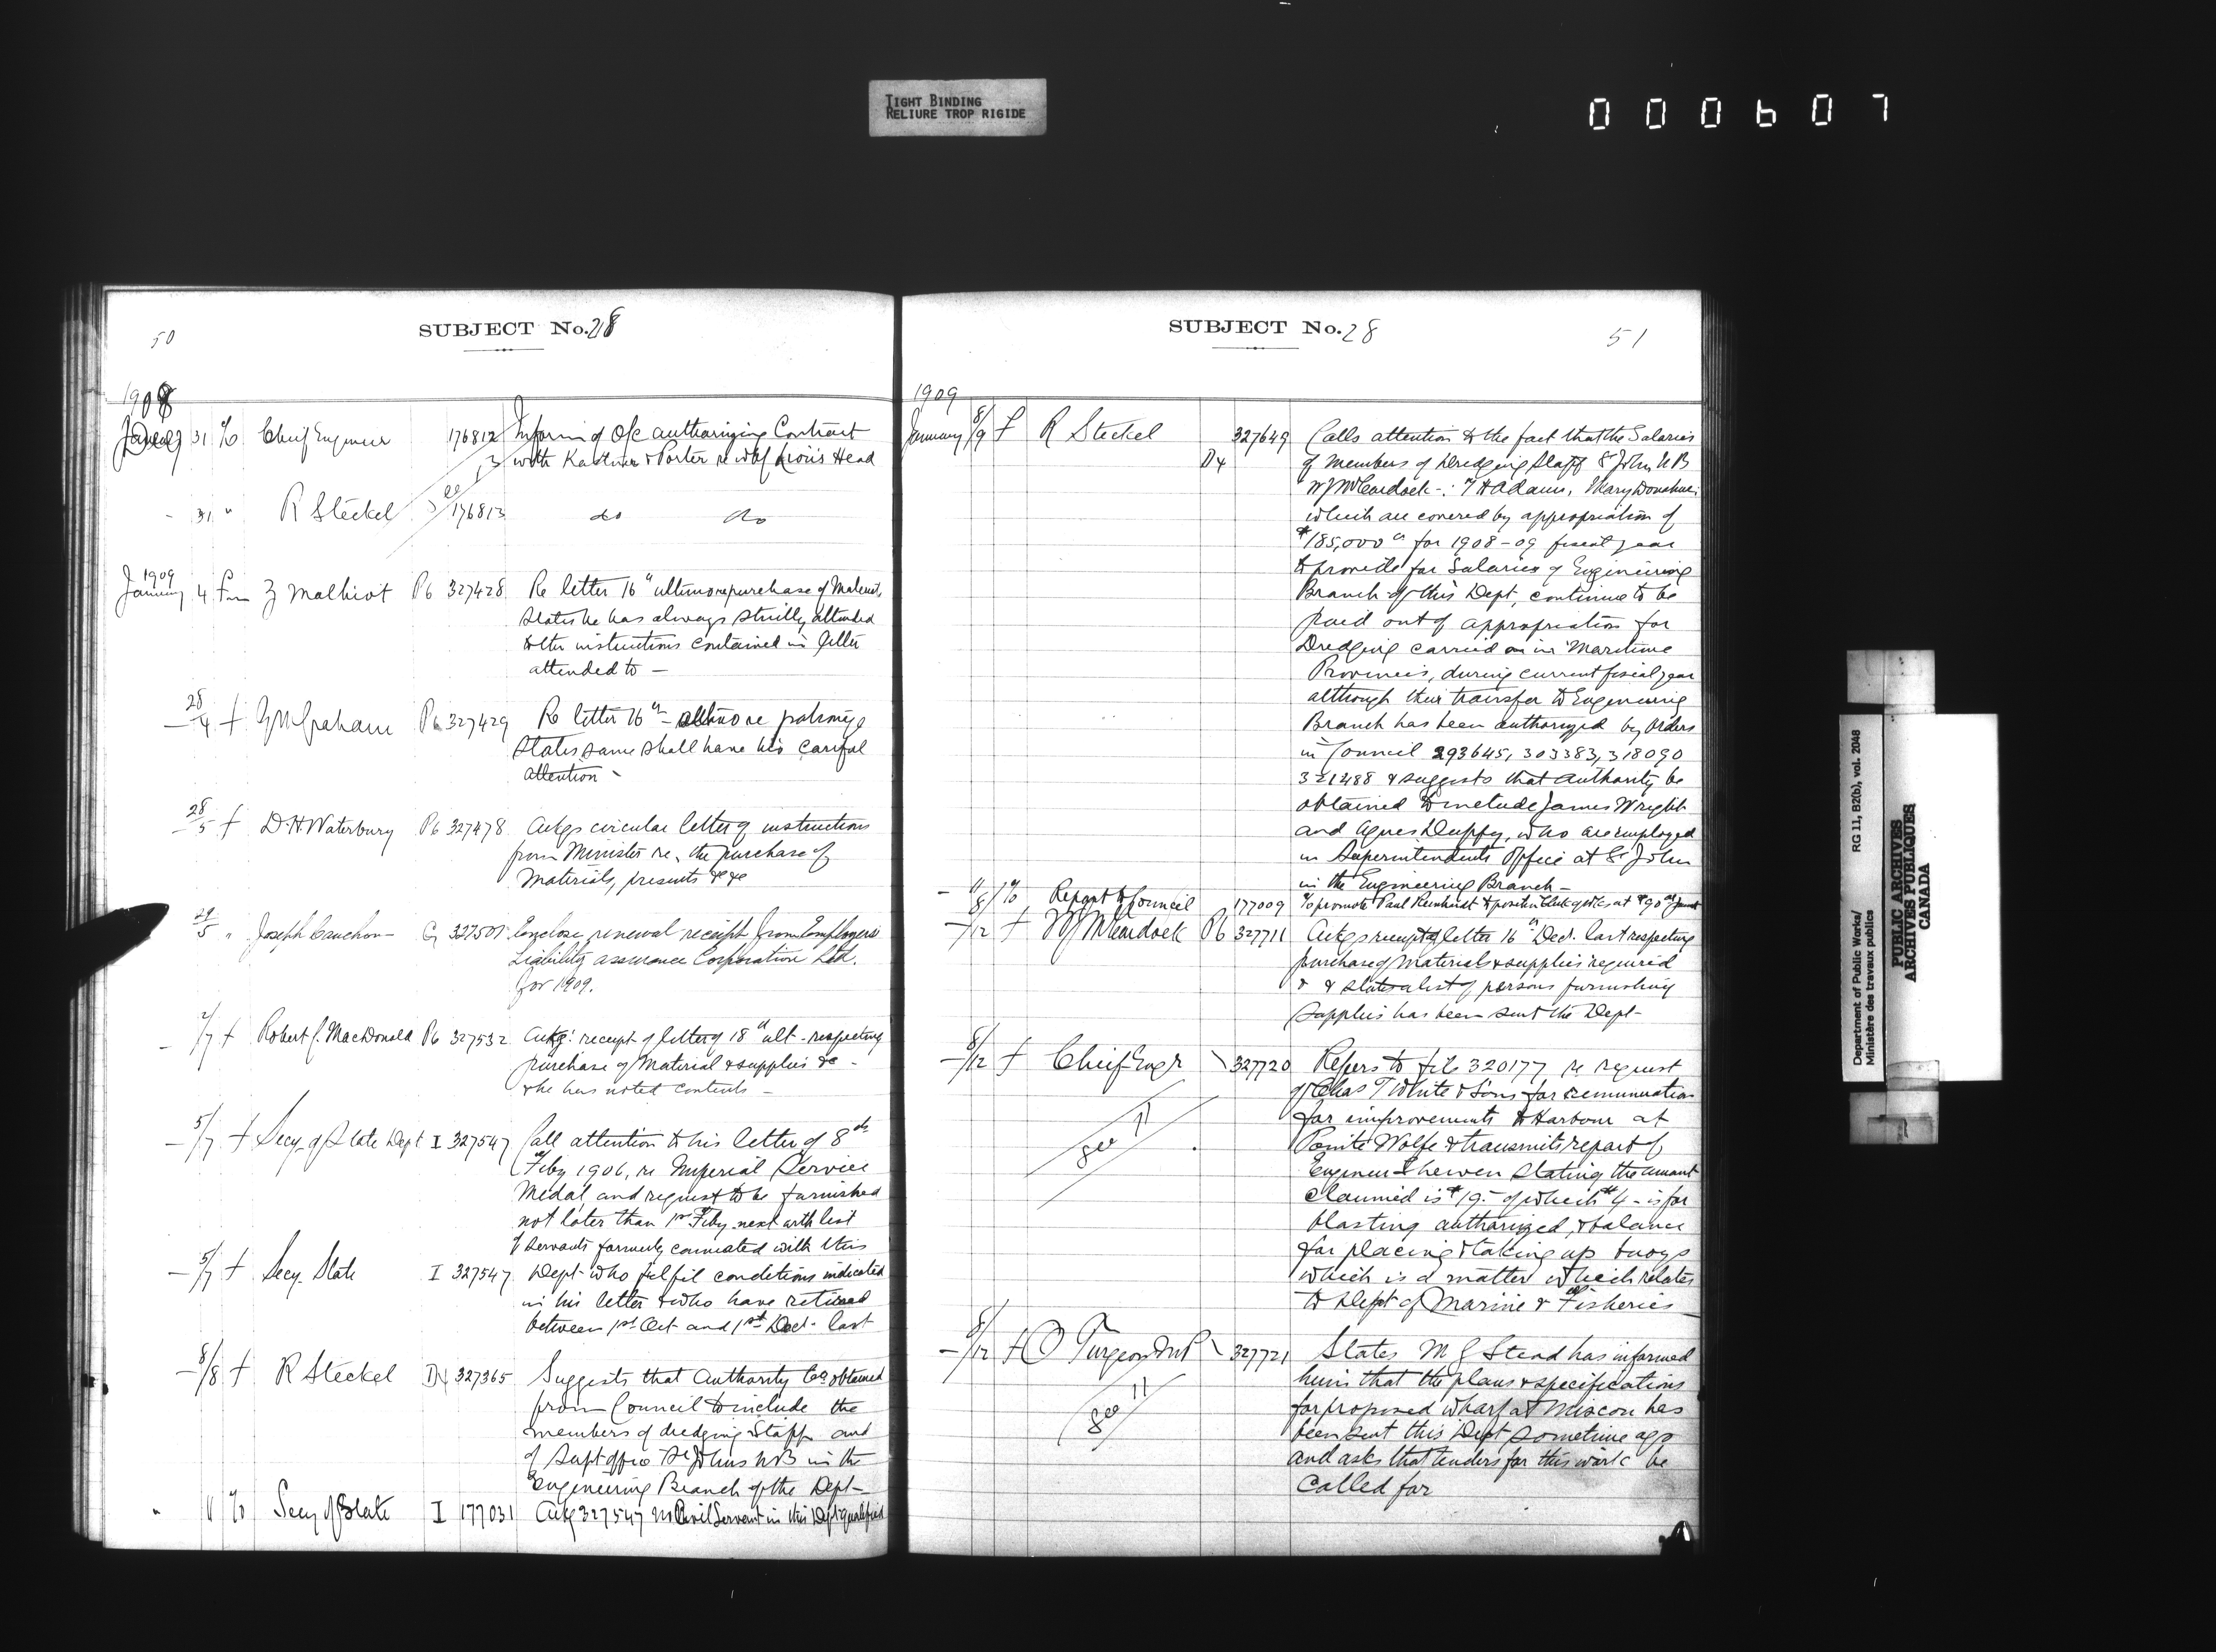 TIGHT BINDING
RELIURE TROP RIGIDE
000607
50
SUBJECT No. 28
1908
Dec 31 To Chief Engineer 176812 Inform of O/C authorizing Contract
with Kastner & Porter re whf Lion's Head
- 31 " R Steckel 176813 do do
1909
January 4 Fm Z Malhiot P6 327428 Re letter 16" ultimo re purchase of Material,
states he has always strictly attended
to the instructions contained in letter
attended to —
28/4 f G M Graham P6 327429 Re letter 16" ultimo re patronage
states same shall have his careful
attention -
28/5 f D. H. Waterbury P6 327478 Ackgs circular letter of instructions
from Minister re. the purchase of
Materials, presents &c &c
29/5 " Joseph Cauchon - G 327501 Enclose renewal receipt from Employers
Liability assurance Corporation Ltd.
for 1909.
- 2/7 f Robert J. MacDonald P6 327532 Ackg. receipt of letter of 18" ult - respecting
purchase of Material & supplies &c -
& he has noted contents -
- 5/7 f Secy of State Dept I 327547 Call attention to his letter of 8th
Feby 1906, re Imperial Service
Medal, and request to be furnished
not later than 1st Feby next with list
of servants formerly connected with this
- 5/7 f Secy. State I 327547 Dept - who fulfil conditions indicated
in his letter & who have retired
between 1st Oct and 1st Dec. last
- 8/8 f R Steckel D4 327365 Suggests that Authority be obtained
from Council to include the
members of dredging Staff and
of Supt office St Johns NB in the
Engineering Branch of the Dept -
" 11 To Secy of State I 177031 Ackg 327547 no Civil Servant in this Dept qualified
SUBJECT No. 28
51
1909
January 8/9 f R Steckel D4 327649 Calls attention to the fact that the Salaries
of members of Dredging Staff St John N B
W J McCordock - : T H Adams, Mary Donahue
which are covered by appropriation of
$185,000 for 1908-09 fiscal year
to provide for Salaries of Engineering
Branch of this Dept, continue to be
paid out of appropriation for
Dredging carried on in Maritime
Provinces, during current fiscal year
although their transfer to Engineering
Branch has been authorized by Orders
in Council 293645, 303383, 318090
321488 & suggests that authority be
obtained to include James Wright
and Agnes Duffy, who are employed
in Superintendents Office at St John
in the Engineering Branch -
- 11/8 To Report to Council 177009 To promote Paul Reinhardt to position Clerk of Wks at $90
- /12 f W J McCordock P6 327711 Ackgs receipt of letter 16" Dec. last respecting
purchase of Materials & supplies required
& & states a list of persons furnishing
supplies has been sent the Dept -
- 8/12 f Chief Engr 327720 Refers to file 320177 re request
of Chas T White & Sons for remuneration
for improvements to Harbour at
Pointe Wolfe & transmits report of
Engineer Shewen stating the amount
claimed is $19.- of which $4 - is for
blasting authorized, & balance
for placing & taking up buoys
which is a matter which relates
to Dept of Marine & Fisheries
- 8/12 f O Turgeon M P 327721 States M G Stead has informed
him that the plans & specifications
for proposed wharf at Miscou has
been sent this Dept sometime ago
and asks that tenders for this work be
called for
Department of Public Works/
Ministère des travaux publics
RG 11, B2(b), vol. 2048
PUBLIC ARCHIVES
ARCHIVES PUBLIQUES
CANADA